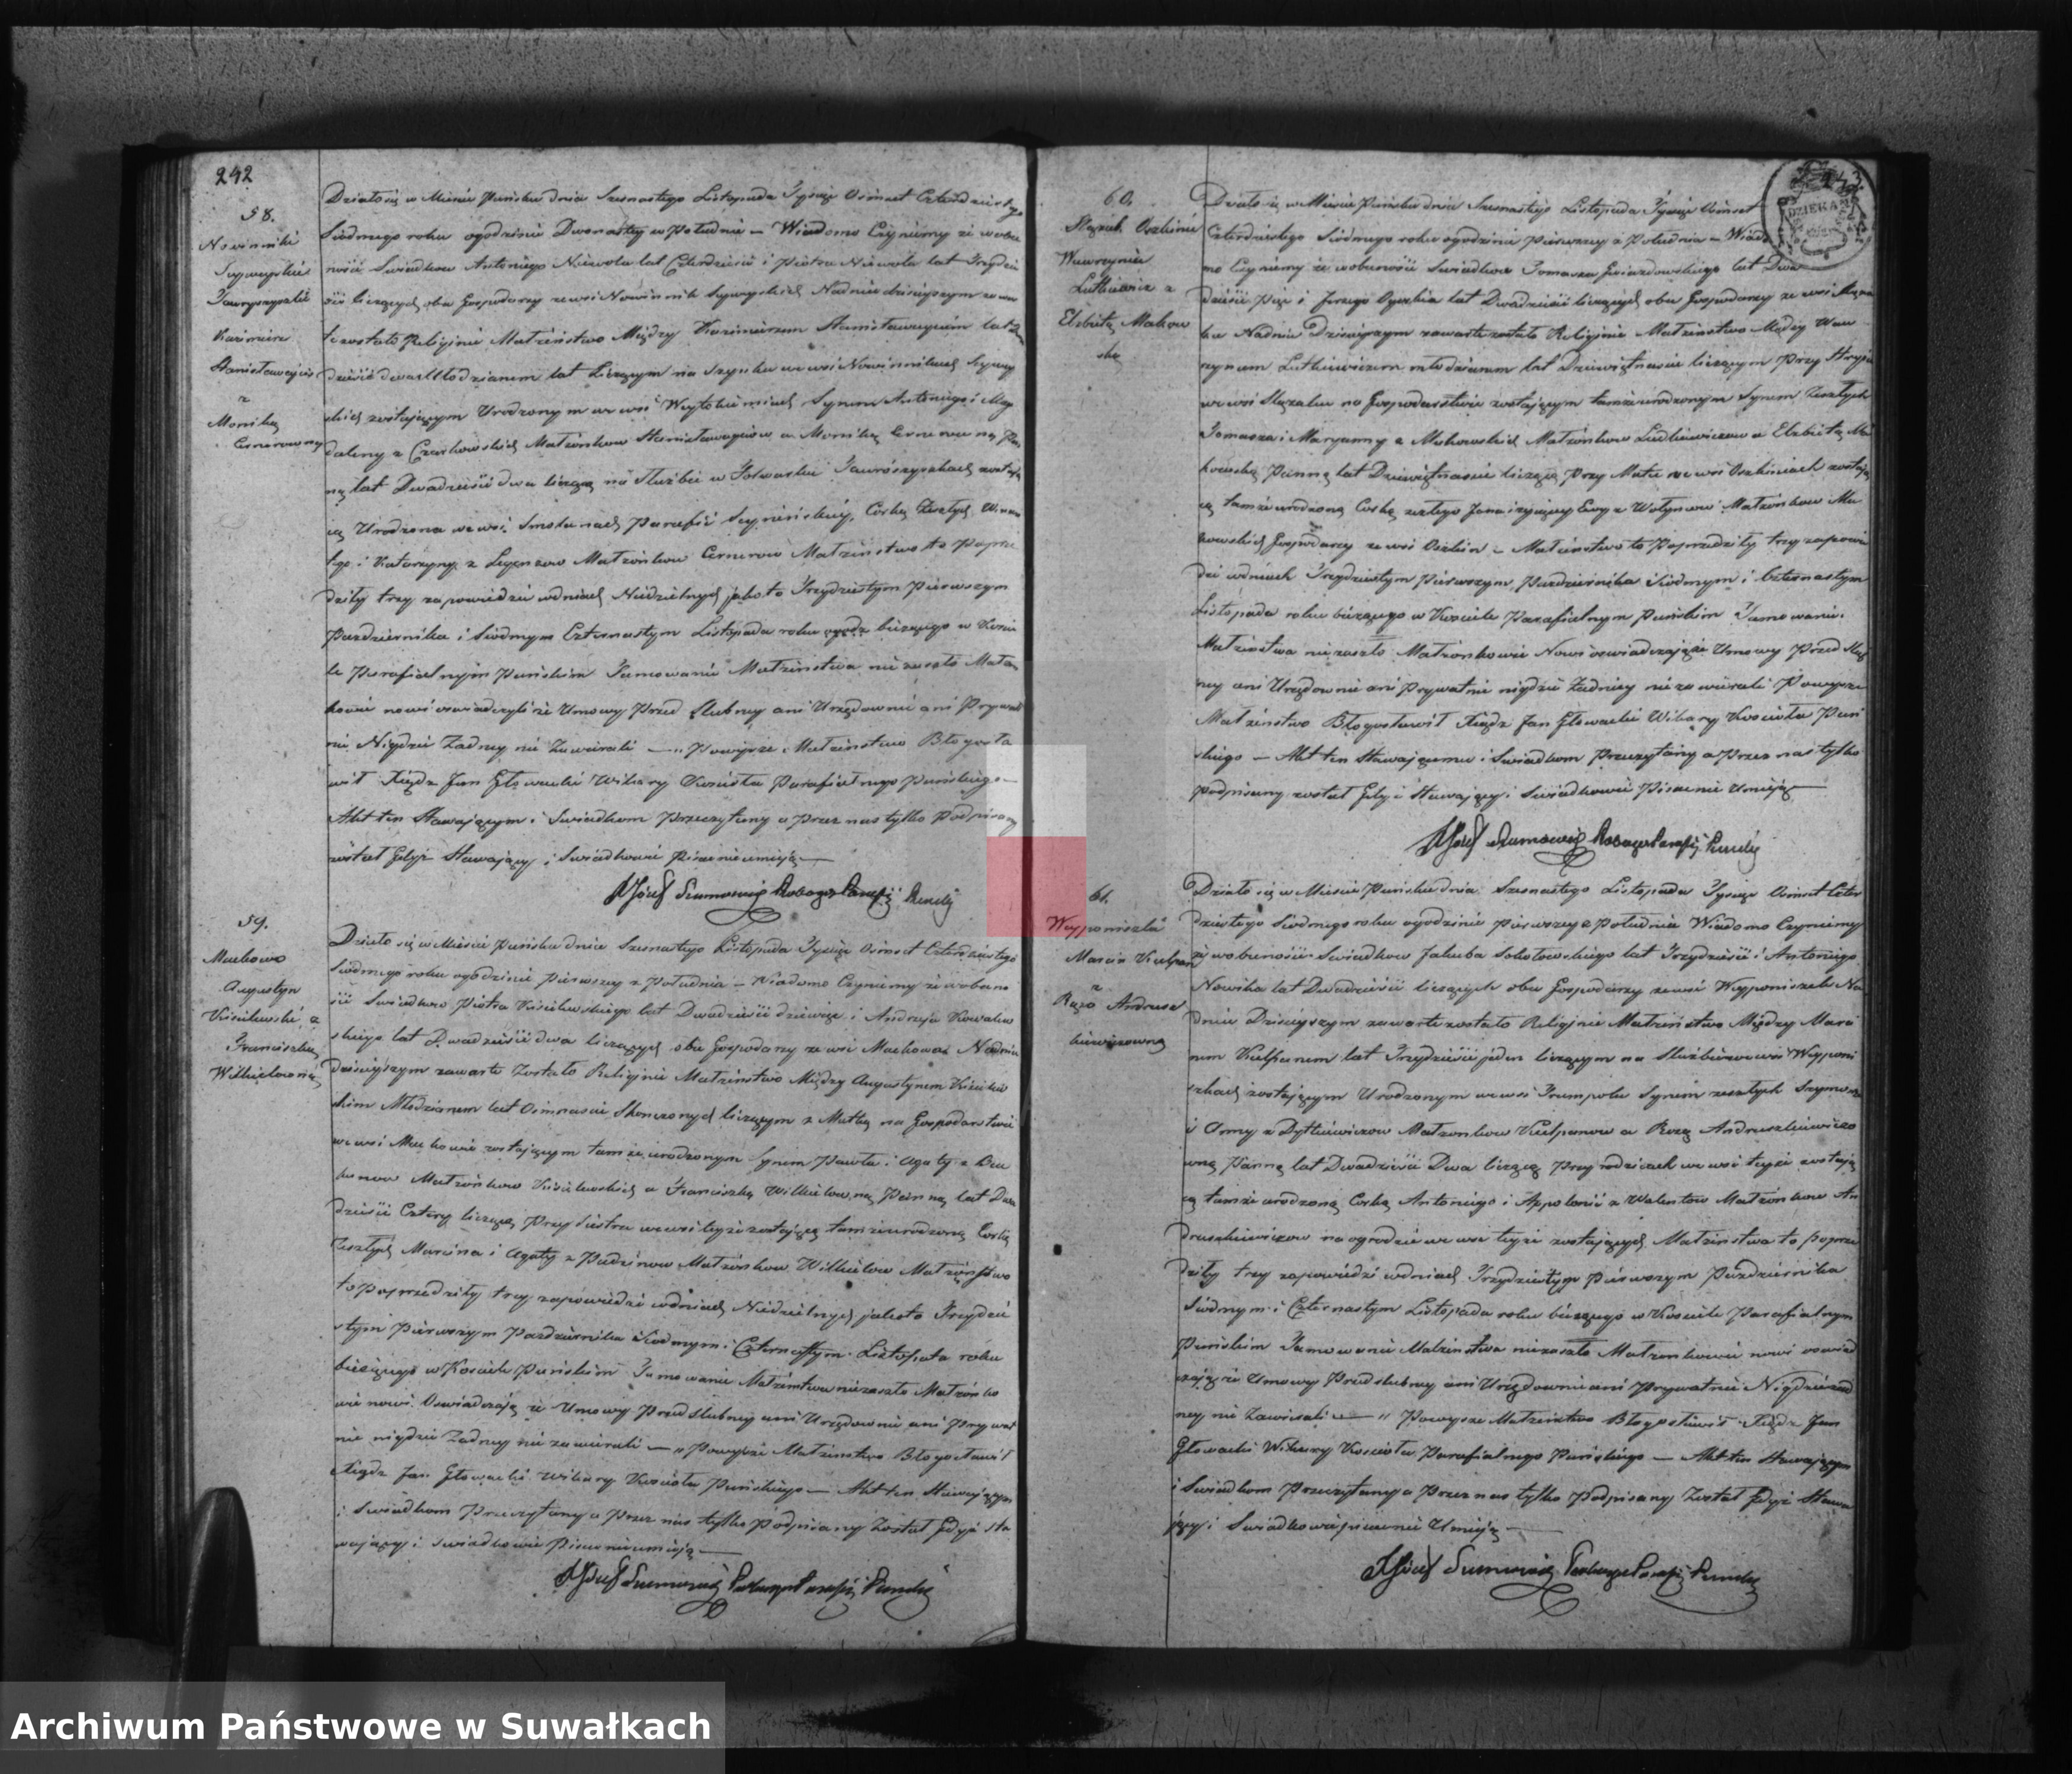 242
58.
Nowinniki
Kazimierz
Stanisławajcis
z
Moniką
Cernerowną
Działo się w Mieście Puńsku dnia Szesnastego Listopada Tysiąc Ośmset Czterdziestego
Siódmego roku ogodzinie Dwonastey w Południe — Wiadomo Czyniemy że wobec
ności Swiadkow Antoniego Niewola lat Czterdzieści i Piotra Niewola lat Trzydzie
ści liczących obu Gospodarzy ze wsi Nowinnik
to zostało Religijne Małżeństwo Między Kazimierzem
Młodzianem lat liczącym na we wsi
zostającym Urodzonym we wsi Synem Antoniego i Mag
daleny z Czarkowskich Małżonkow a Monikę Cernerowną
lat Dwadzieścia dwa liczącą na Służbie w Folwarku
cą Urodzona we wsi Smolanach Parafii Seyneńskiey, Corką Zeszłych
i Katarzyny z Małżonkow Cernerow Małżeństwo to Poprze
dziły trzy zapowiedzie w dniach Niedzielnych jako to Trzydziestym Pierwszym
Pazdziernika i Siodmym Czternastym Listopada roku bieżącego w Koscie
le Parafialnym Puńskim Tamowanie Małżeństwa nie zaszło Małżon
kowie nowi oswiadczyli że Umowy Przed Slubney ani Urzędownie ani Prywat
nie Nigdzie Zadney nie Zawierali — Powyższe Małżeństwo Błogosła
wił Xiądz Jan Głowacki Wikary Koscioła Parafialnego Puńskiego —
Akt ten Stawającym i Swiadkom Przeczytany a Przez nas tylko Podpisany
został Gdyż Stawający i Swiadkowie Pisać nie umieją —
59.
Maćkowo
Augustyn
z
Franciszką
Działo się w Mieście Puńsku dnia Szesnastego Listopada Tysiąc Ośmset Czterdziestego
Siodmego roku ogodzinie Pierwszey z Południa — Wiadomo Czyniemy że w obecno
ści Swiadkow Piotra lat Dwadzieścia dziewięć i Andrzeja Kowalew
skiego lat Dwadzieścia dwa liczących obu Gospodarzy ze wsi Maćkowa Nadniu
dzisieyszym zawarte Zostało Religijne Małżeństwo Między Augustynem
skim Młodzianem lat Ośmnaście Skonczonych liczącym z Matką na Gospodarstwie
we wsi Maćkowie zostającym tamże urodzonym Synem Pawła i Agaty z
Małżonkow a Franciszką Panną lat Dwa
dzieścia Cztery liczącą Przy Siestrze we wsi teyże zostającą tamże urodzoną Corką
Zeszłych Marcina i Agaty z Małżonkow Małżeństwo
to poprzedziły trzy zapowiedzi w dniach Niedzielnych jako to Trzydzie
stym Pierwszym Pazdziernika Siodmym i Czternastym Listopada roku
bieżącego w Kosciele Puńskim Tamowanie Małżeństwa nie zaszło Małżonko
wie nowi Oswiadczają że Umowy Przedślubney ani Urzędownie ani Prywat
nie nigdzie Zadney nie zawierali — Powyższe Małżeństwo Błogosławił
Xiądz Jan Głowacki Wikary Kosciola Puńskiego — Akt ten Stawającym
i Swiadkom Przeczytany a Przez nas tylko Podpisany Został Gdyż sta
wający i swiadkowie Pisać nie umieją —
60.
Oszkinie
Wawrzyniec
Lutkiewicz z
Elzbietą Makow
ską
Działo się w Mieście Puńsku dnia Szesnastego Listopada Tysiąc Ośmset
Czterdziestego Siódmego roku ogodzinie Pierwszey z Południa — Wiado
mo Czyniemy że wobecności Swiadkow Tomasza Gwiazdowskiego lat Dwa
dzieścia Pięć i Jerzego lat Dwadzieścia liczących obu Gospodarzy ze wsi
Nadniu Dzisieyszym zawarte zostało Religijne Małżeństwo Między Waw
rzyncem Lutkiewiczem młodzianem lat Dziewiętnaście liczącym Przy Stryju
we wsi na Gospodarstwie zostającym tamże urodzonym Synem Zeszłych
Tomasza i Maryanny z Makowskich Małżonkow Lutkiewiczow a Elzbietą Ma
kowską Panną lat Dziewiętnaście liczącą Przy Matce we wsi Oszkiniach zostają
cą tamże urodzoną Corką zeszłego Jana i żyjącey Ewy z Wołynow Małżonkow Ma
kowskich Gospodarzy ze wsi Oszkin — Małżeństwo to Poprzedziły trzy zapowie
dzi w dniach Trzydziestym Pierwszym Pazdziernika Siodmym i Czternastym
Listopada roku bieżącego w Kosciele Parafialnym Puńskim Tamowanie
Małżeństwa nie zaszło Małżonkowie Nowi oswiadczają że Umowy Przed Slub
ney ani Urzędownie ani Prywatnie nigdzie Zadney nie zawierali Powyższe
Małżeństwo Błogosławił Xiądz Jan Głowacki Wikary Kosciola Puń
skiego — Akt ten Stawającemu i Swiadkom Przeczytany a Przez nas tylko
podpisany został Gdyż Stawający i Swiadkowie Pisać nie Umieją —
61.
Wayponiszki
Marcin Kulpan
z
Rozą Andrusz
kiewiczowną
Działo się w Mieście Puńsku dnia Szesnastego Listopada Tysiąc Ośmset Czter
dziestego Siodmego roku ogodzinie Pierwszey z Południa Wiadomo Czyniemy
że wobecności Swiadkow Jakuba Sokołowskiego lat Trzydzieści i Antoniego
Nowika lat Dwadzieścia liczących obu Gospodarzy ze wsi Wayponiszek Na
dniu Dzisieyszym zawarte zostało Religijne Małżeństwo Między Marci
nem Kulpanem lat Trzydzieści jeden liczącym na Służbie we wsi Wayponi
szkach zostającym Urodzonym we wsi Trumpolu Synem zeszłych Szymona
i Anny z Dytkiewiczow Małżonkow Kulpanow a Rozą Andruszkiewiczo
wną Panną lat Dwadzieścia Dwa liczącą Przy rodzicach we wsi teyże zostają
cą tamże urodzoną Corką Antoniego i Appolonii z Walentow Małżonkow An
druszkiewiczow na ogrodzie we wsi teyże zostających Małżeństwo to poprze
dziły trzy zapowiedzi w dniach Trzydziestym Pierwszym Pazdziernika
Siódmym i Czternastym Listopada roku bieżącego w Kosciele Parafialnym
Puńskim Tamowanie Małżeństwa nie zaszło Małżonkowie nowi oswiad
czają że Umowy Przedslubney ani Urzędownie ani Prywatnie Nigdzie zad
ney nie Zawierali — Powyższe Małżeństwo Błogosławił Xiądz Jan
Głowacki Wikary Kosciola Parafialnego Puńskiego — Akt ten Stawającym
i Swiadkom Przeczytany a Przez nas tylko Podpisany Został Gdyż Stawa
jący i Swiadkowie pisać nie Umieją —
Archiwum Państwowe w Suwałkach